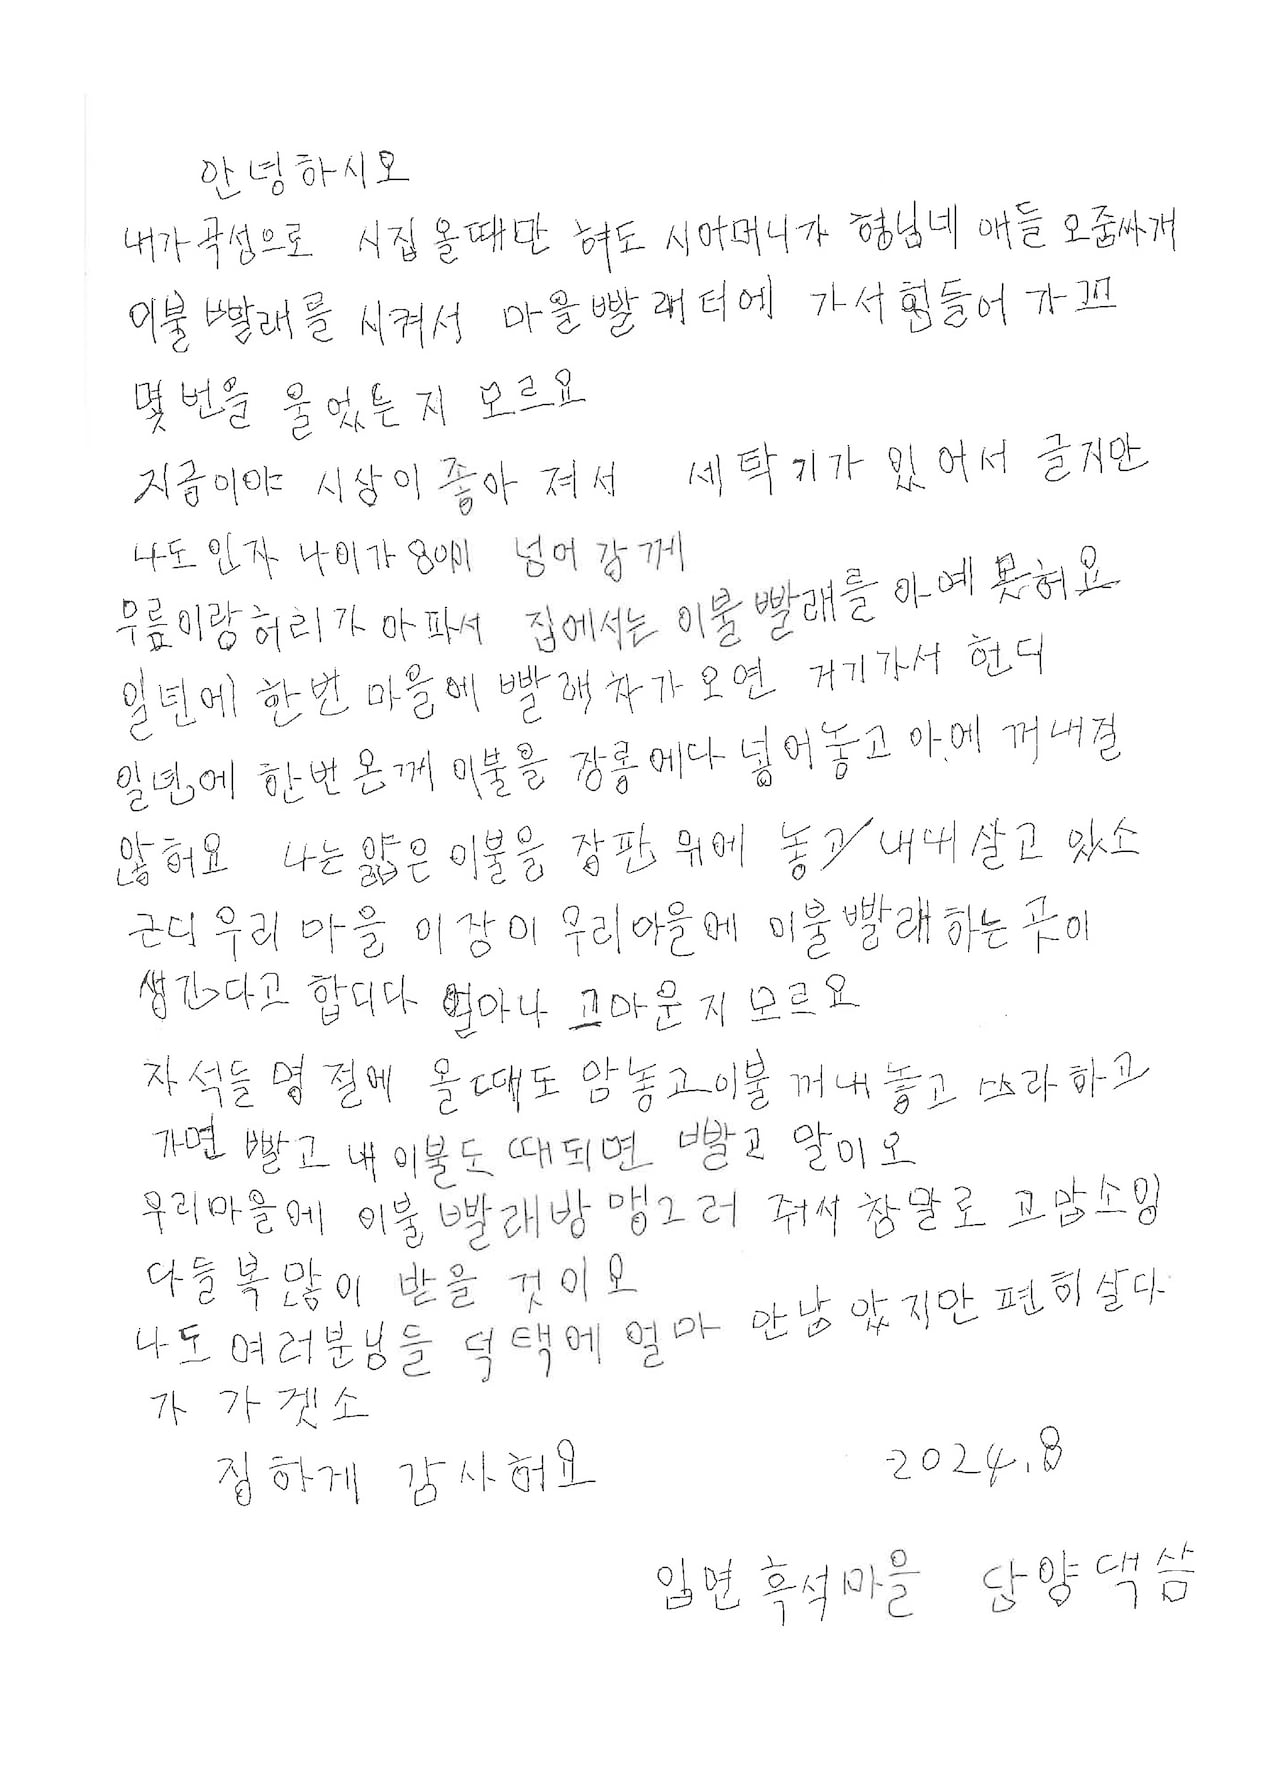 안녕하시오
내가 곡성으로 시집 올때만 혀도 시어머니가 형님네 애들 오줌싸개
이불 빨래를 시켜서 마을빨래터에 가서 힘들어 가꼬
몇번을 울었는지 모르요
지금이야 시상이 좋아 져서 세탁기가 있어서 글지만
나도 인자 나이가 80이 넘어 강께
무릎이랑 허리가 아파서 집에서는 이불빨래를 아예 못혀요
일년에 한번 마을에 빨래차가 오면 거기가서 헌디
일년에 한번 온께 이불을 장롱에다 넣어놓고 아에 꺼내질
않혀요 나는 얇은 이불을 장판 위에 놓고 내내 살고 있소
근디 우리 마을 이장이 우리마을에 이불빨래하는 곳이
생긴다고 합디다 얼마나 고마운지 모르요
자석들 명절에 올때도 암농고이불 꺼내놓고 쓰라하고
가면 빨고 내이불도 때되면 빨고 말이오
우리마을에 이불 빨래방 맹그러 줘서 참말로 고맙소잉
다들 복 많이 받을 것이오
나도 여러분님들 덕택에 얼마 안남았지만 편히살다
가 가겟소
집하게 감사혀요 2024.8
입면 흑석마을 담양댁 씀